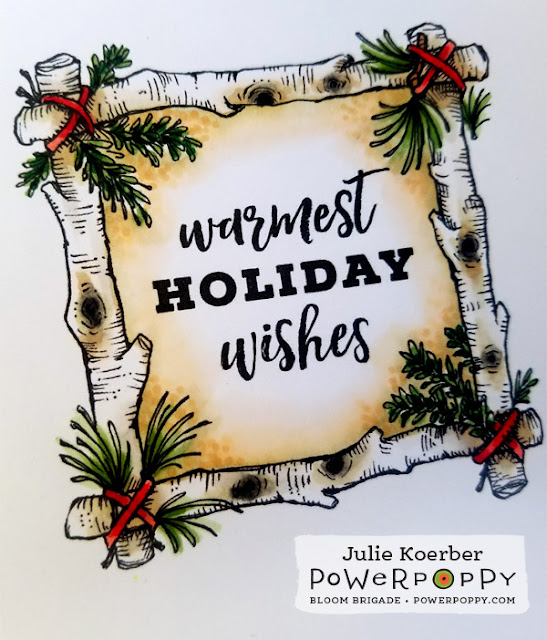 warmest
HOLIDAY
wishes
Julie Koerber
POWERPOPPY
BLOOM BRIGADE • POWERPOPPY.COM